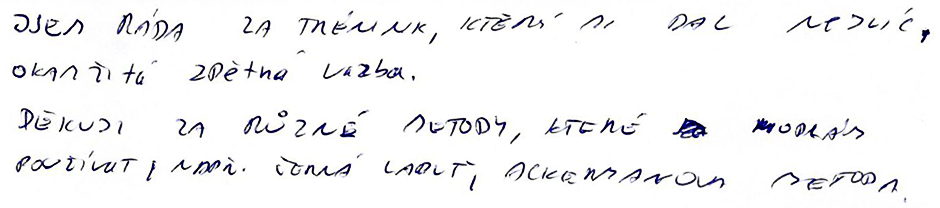 JSEM RÁDA ZA TRÉNINK, KTERÝ MI DAL NEJVÍC,
OKAMŽITÁ ZPĚTNÁ VAZBA.
DĚKUJI ZA RŮZNÉ METODY, KTERÉ MOHU
POUŽÍVAT, NAPŘ. ČERNÁ LABUŤ, ACKERMANOVA METODA.